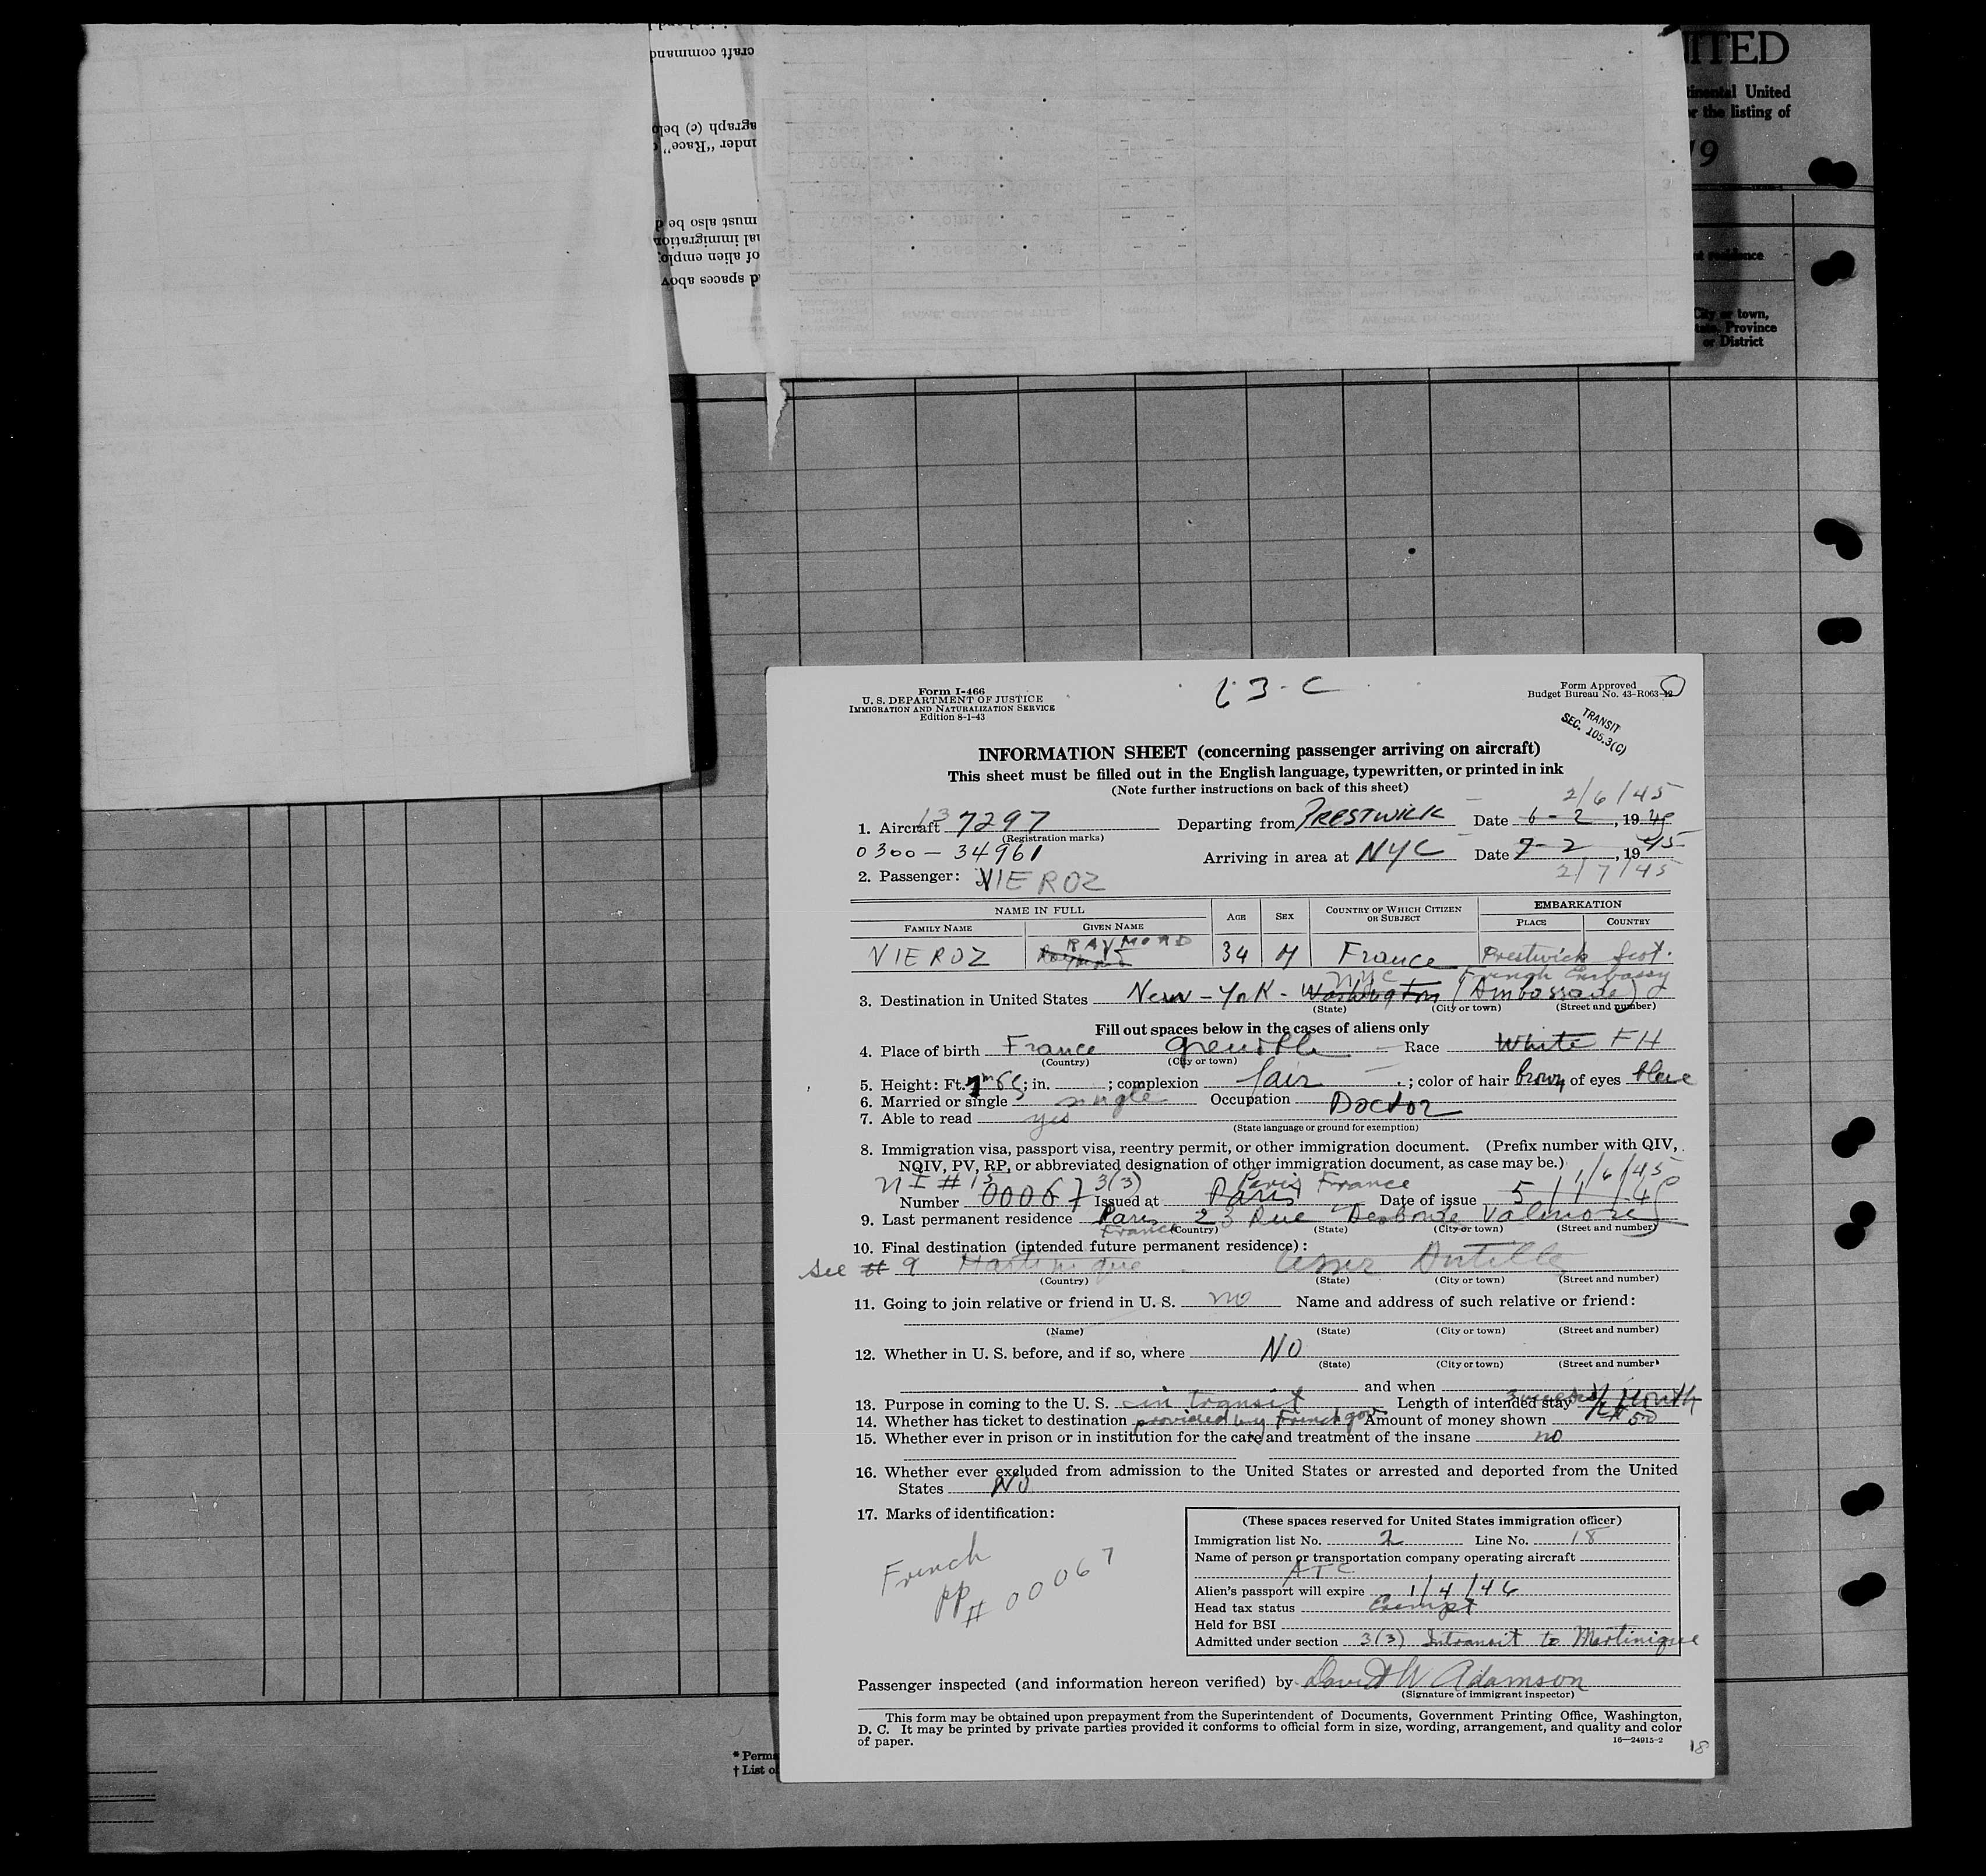 craft command
agraph (c) belo
under "Race"
must also be d
nal immigration
of alien emplo
d spaces abov
ITED
tinental United
or the listing of
19
nt residence
City or town,
State, Province
or District
Form I-466
U. S. DEPARTMENT OF JUSTICE
IMMIGRATION AND NATURALIZATION SERVICE
Edition 8-1-43
63-C
Form Approved
Budget Bureau No. 43-R063-42
TRANSIT
SEC. 105.3(C)
INFORMATION SHEET (concerning passenger arriving on aircraft)
This sheet must be filled out in the English language, typewritten, or printed in ink
(Note further instructions on back of this sheet)
2/6/45
1. Aircraft 137297 Departing from PRESTWICK Date 6-2, 1945
(Registration marks)
0300-34961 Arriving in area at NYC Date 7-2, 1945
2/7/45
2. Passenger: VIEROZ
NAME IN FULL AGE SEX COUNTRY OF WHICH CITIZEN OR SUBJECT EMBARKATION
FAMILY NAME GIVEN NAME PLACE COUNTRY
VIEROZ RAYMOND 34 M France Prestwick Scot.
NYC French Embassy
3. Destination in United States New-York-Washington (Ambassade)
(State) (City or town) (Street and number)
Fill out spaces below in the cases of aliens only
4. Place of birth France Grenoble Race White FH
(Country) (City or town)
5. Height: Ft. 1m65; in. ; complexion fair ; color of hair brown of eyes blue
6. Married or single single Occupation Doctor
7. Able to read yes
(State language or ground for exemption)
8. Immigration visa, passport visa, reentry permit, or other immigration document. (Prefix number with QIV,
NQIV, PV, RP, or abbreviated designation of other immigration document, as case may be.)
NI #13 3(3) Paris France 1/6/45
Number 00067 Issued at Paris Date of issue 5/1/45
9. Last permanent residence Paris 23 Rue Desbordes Valmore
France (Country) (State) (City or town) (Street and number)
10. Final destination (intended future permanent residence):
see # 9 Martinique Lesser Antilles
(Country) (State) (City or town) (Street and number)
11. Going to join relative or friend in U. S. no Name and address of such relative or friend:
(Name) (State) (City or town) (Street and number)
12. Whether in U. S. before, and if so, where NO
(State) (City or town) (Street and number)
and when
13. Purpose in coming to the U. S. in transit Length of intended stay 3 weeks 1 Month
14. Whether has ticket to destination provided by French gov Amount of money shown $50
15. Whether ever in prison or in institution for the care and treatment of the insane no
16. Whether ever excluded from admission to the United States or arrested and deported from the United
States NO
17. Marks of identification:
French
pp
# 00067
(These spaces reserved for United States immigration officer)
Immigration list No. 2 Line No. 18
Name of person or transportation company operating aircraft
ATC
Alien's passport will expire 1/4/46
Head tax status Exempt
Held for BSI
Admitted under section 3(3) Intransit to Martinique
Passenger inspected (and information hereon verified) by David W Adamson
(Signature of immigrant inspector)
This form may be obtained upon prepayment from the Superintendent of Documents, Government Printing Office, Washington,
D. C. It may be printed by private parties provided it conforms to official form in size, wording, arrangement, and quality and color
of paper.
16—24915-2
18
* Perma
† List o